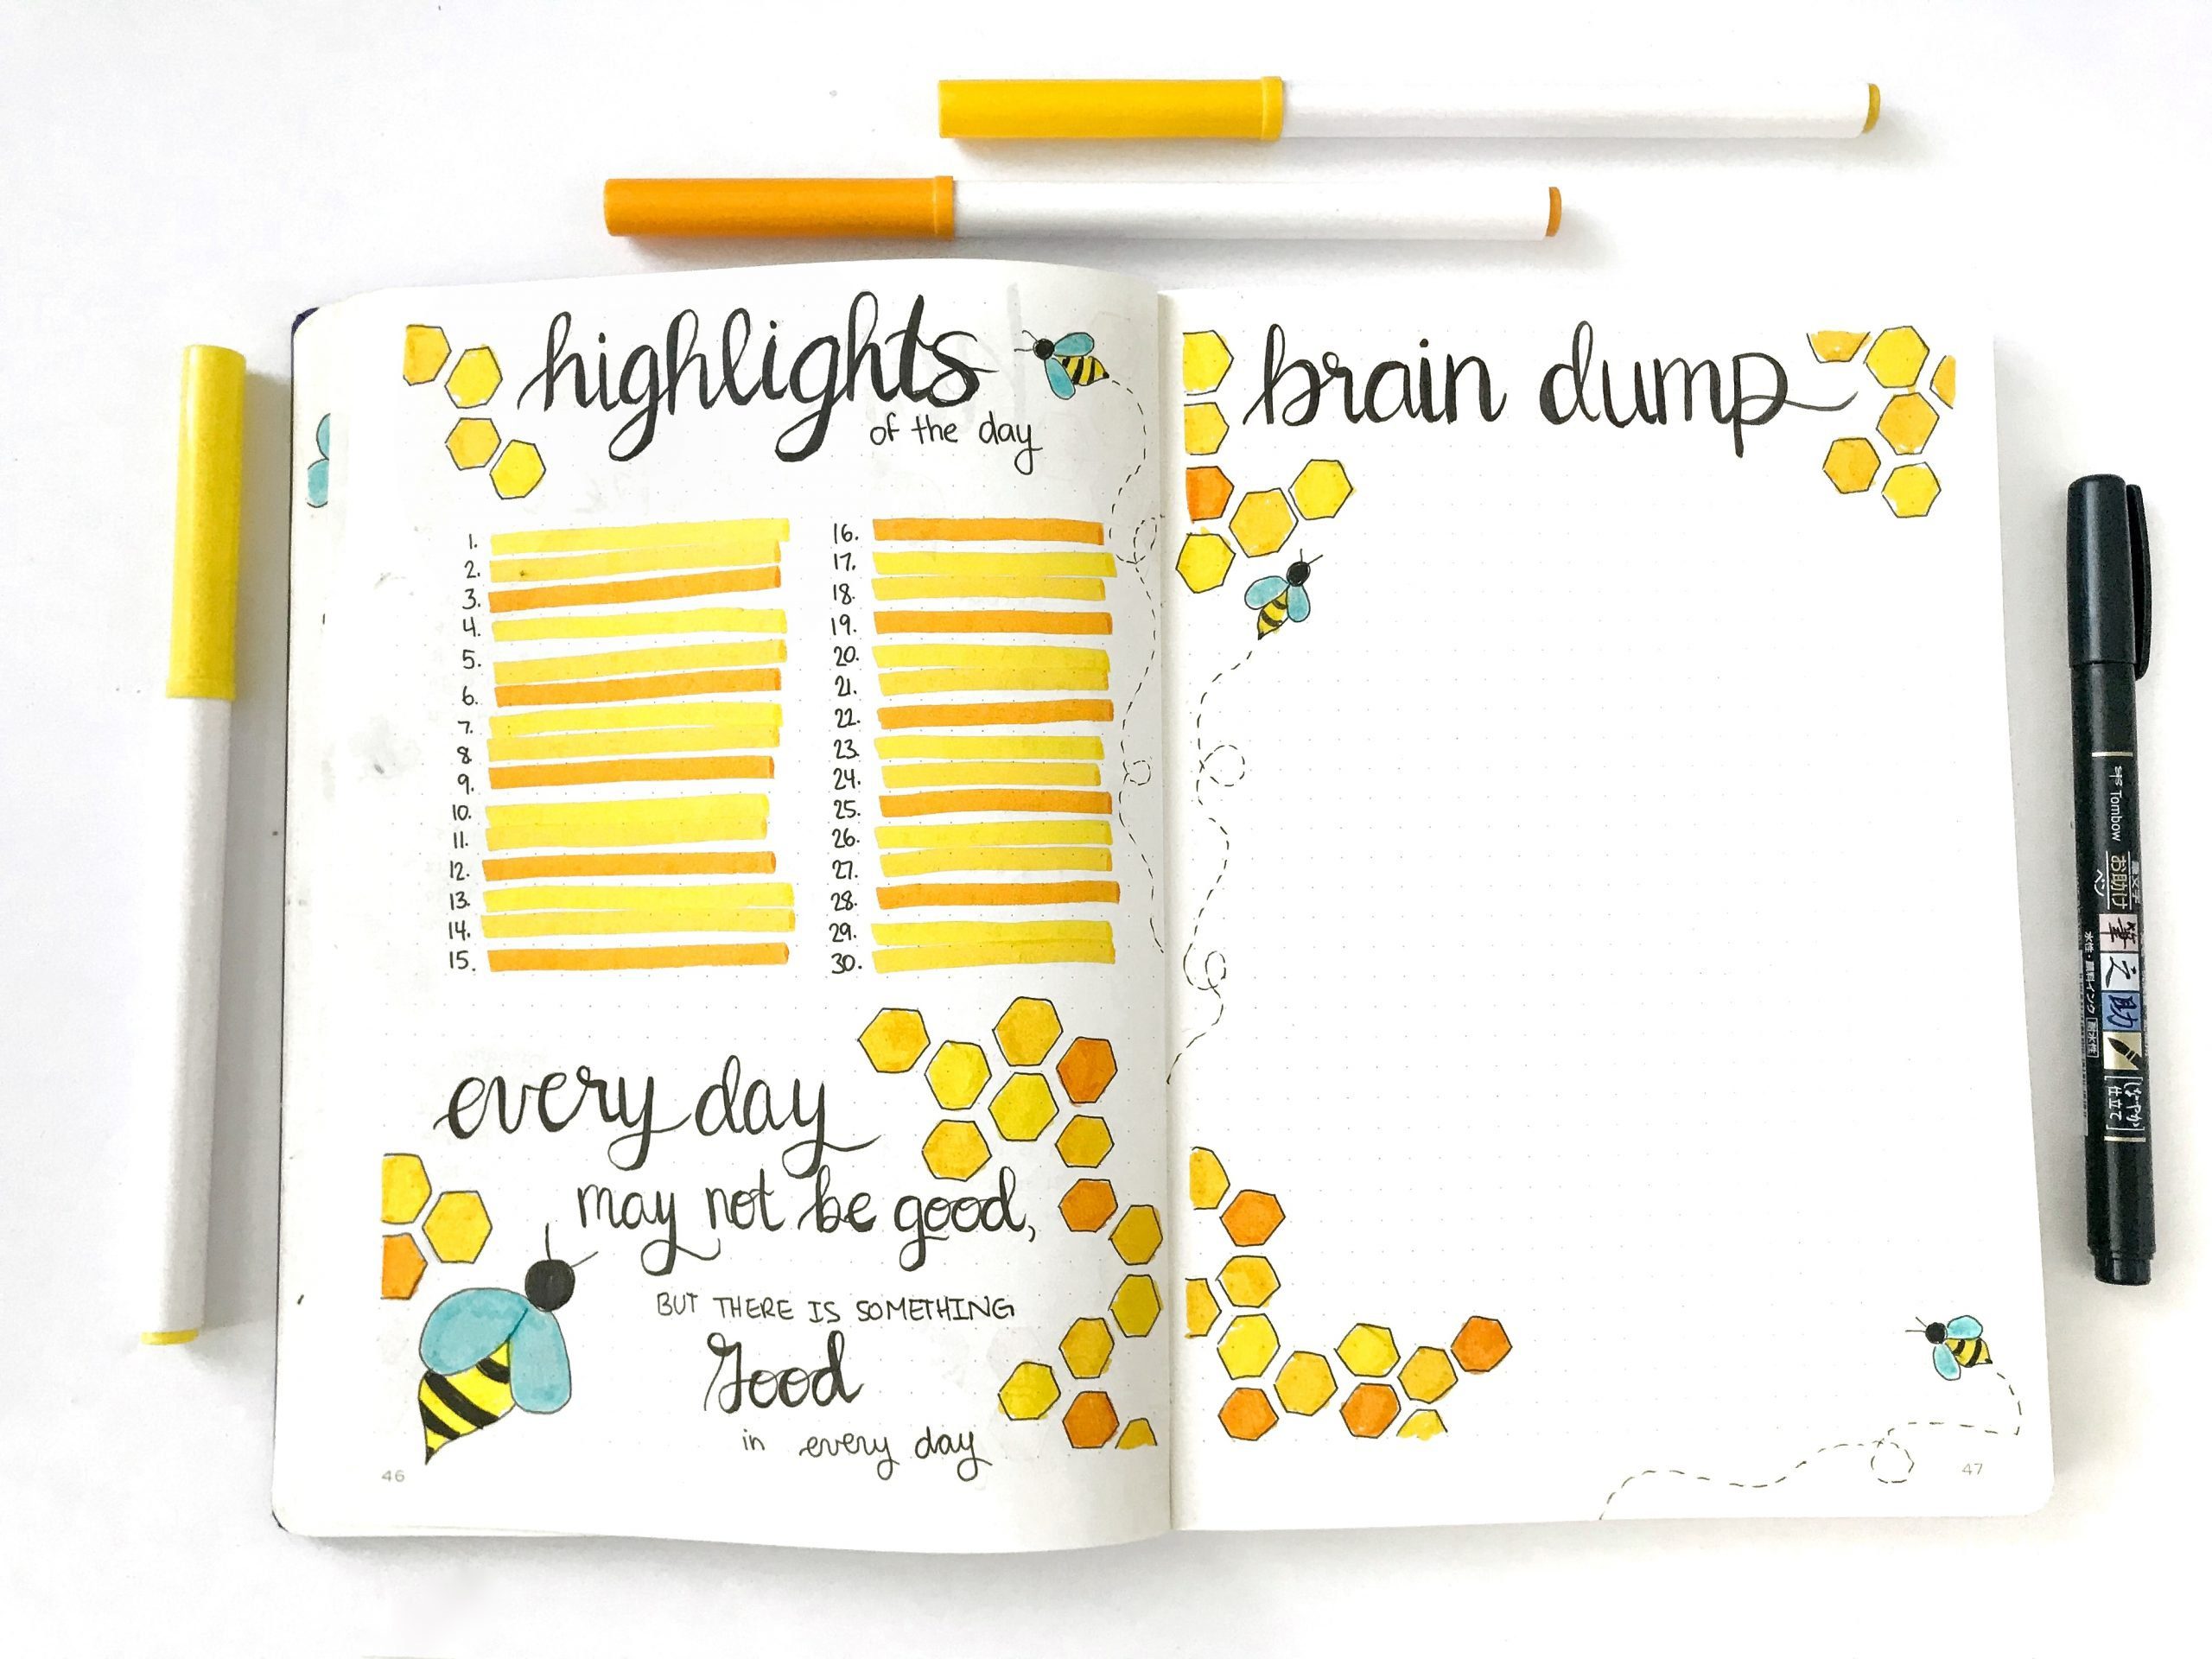 highlights
of the day
1.
2.
3.
4.
5.
6.
7.
8.
9.
10.
11.
12.
13.
14.
15.
16.
17.
18.
19.
20.
21.
22.
23.
24.
25.
26.
27.
28.
29.
30.
every day
may not be good,
BUT THERE IS SOMETHING
Good
in every day
46
brain dump
47
Tombow
お助け
ペン
筆之助
仕立て